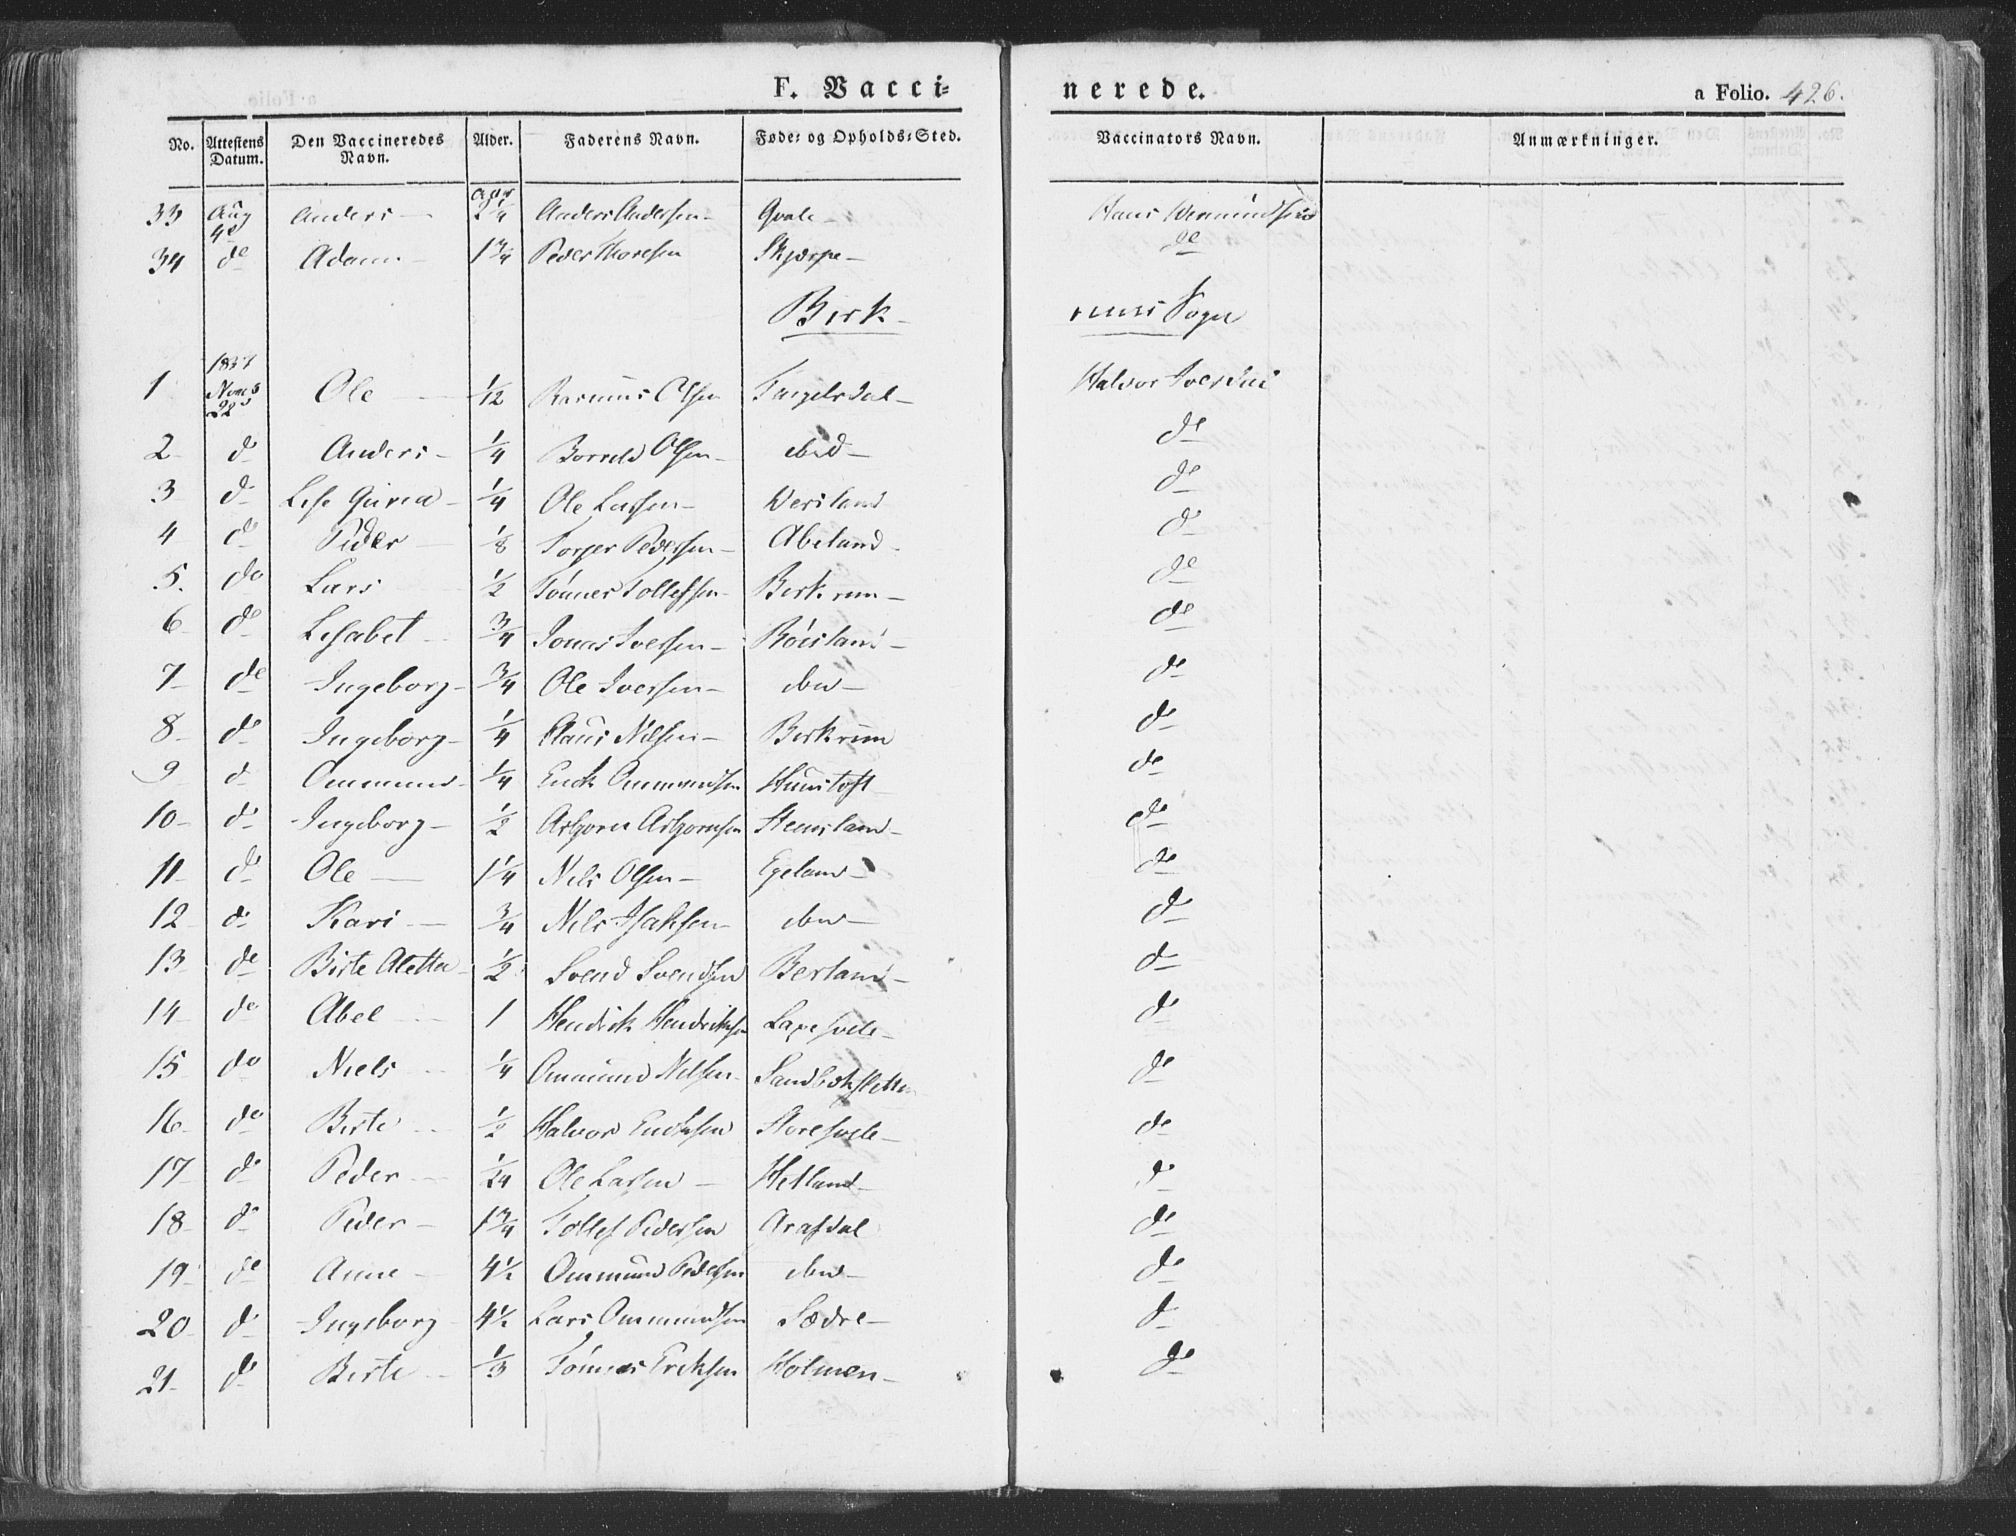 F. Vacci= nerede. a Folio. 426.
No. Attestens Datum. Den Vaccineredes Navn. Alder. Faderens Navn. Føde= og Opholds=Sted. Vaccinators Navn. Anmærkninger.
33 Aug 4de Anders Anders Andersen Qvale Hans
34 de Adam 1 3/4 Peder Thoresen Skjerpe de
Birk rems Sogn
1 1837 22 Ole 1/12 Rasmus Olsen Halvor
2 do Anders 1/4 Olsen ibid de
3 do 1/4 Ole Larsen de
4 do Peder 1/8 Torger Pedersen Abeland do
5. do Lars 1/2 Tønnes Tollefsen Birkrem de
6 de Lisabet 3/4 Jonas Iversen de
7 de Ingeborg 3/4 Ole Iversen ibid de
8 do Ingeborg 1/4 Claus Nilsen Birkrem do
9 d Ommund 1/4 Erick Ommundsen do
10 do Ingeborg 1/2 Asbjorn Asbjornsen do
11 do Ole 1 1/4 Nils Olsen Egeland do
12 do Kari 3/4 Nils Isaksen ibid do
13 de Birte Aletta 1/2 Svend Svendsen do
14 do Abel 1 Hendrik Hendriksen do
15 do Niels 1/4 Ommund Nilsen do
16 do Birte 1/2 Halvor Eriksen Storesvele do
17 do Peder 1/24 Ole Larsen Hetland do
18 do Peder 1 3/4 Tollef Pedersen do
19 de Anne 4 1/2 Ommund Pedersen ibid do
20 do Ingeborg 4 1/2 Lars Ommundsen Sædre do
21 do Birte 1/3 Tønnes Eriksen Holmen do